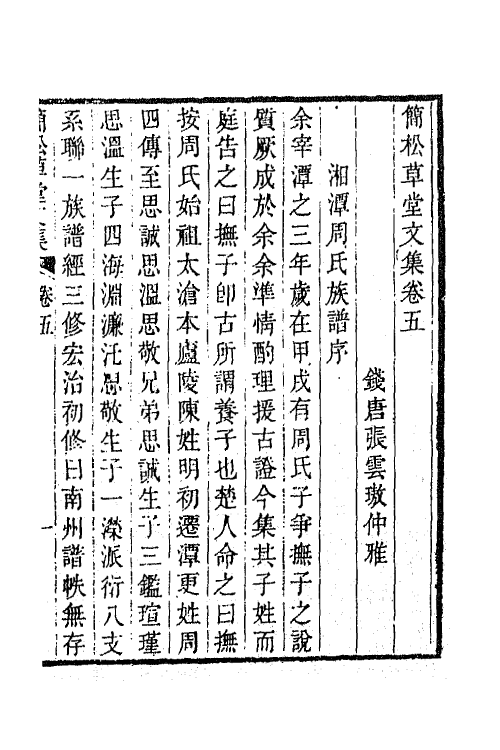 簡松草堂文集卷五
錢唐張雲璈仲雅
湘潭周氏族譜序
余宰潭之三年歲在甲戌有周氏子爭撫子之說
質厥成於余余準情酌理援古證今集其子姓而
庭告之曰撫子卽古所謂養子也楚人命之曰撫
按周氏始祖太滄本廬陵陳姓明初遷潭更姓周
四傳至思誠思溫思敬兄弟思誠生子三鑑瑄瑾
思溫生子四海淵濂沚思敬生子一濚派衍八支
系聯一族譜經三修宏治初修曰南州譜帙無存
簡松草堂文集 卷五 一